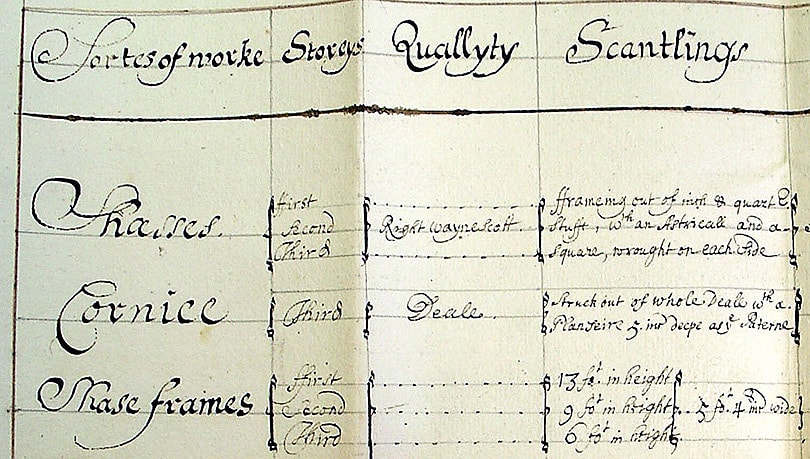 Sortes of worke Storeys Quallyty Scantlings
Shasses
ffirst
Second
Third
Right Waynescott
fframeing out of inch & quart
Stufft, wth an Astricall and a
square, wrought on each side
Cornice
Third
Deale
Struck out of whole Deale wth a
Planseire 5 inc deepe as ye Paterne
Shase frames
ffirst
Second
Third
13 fot in height
9 fot in height
6 fot in height
5 fot 4 inc wide